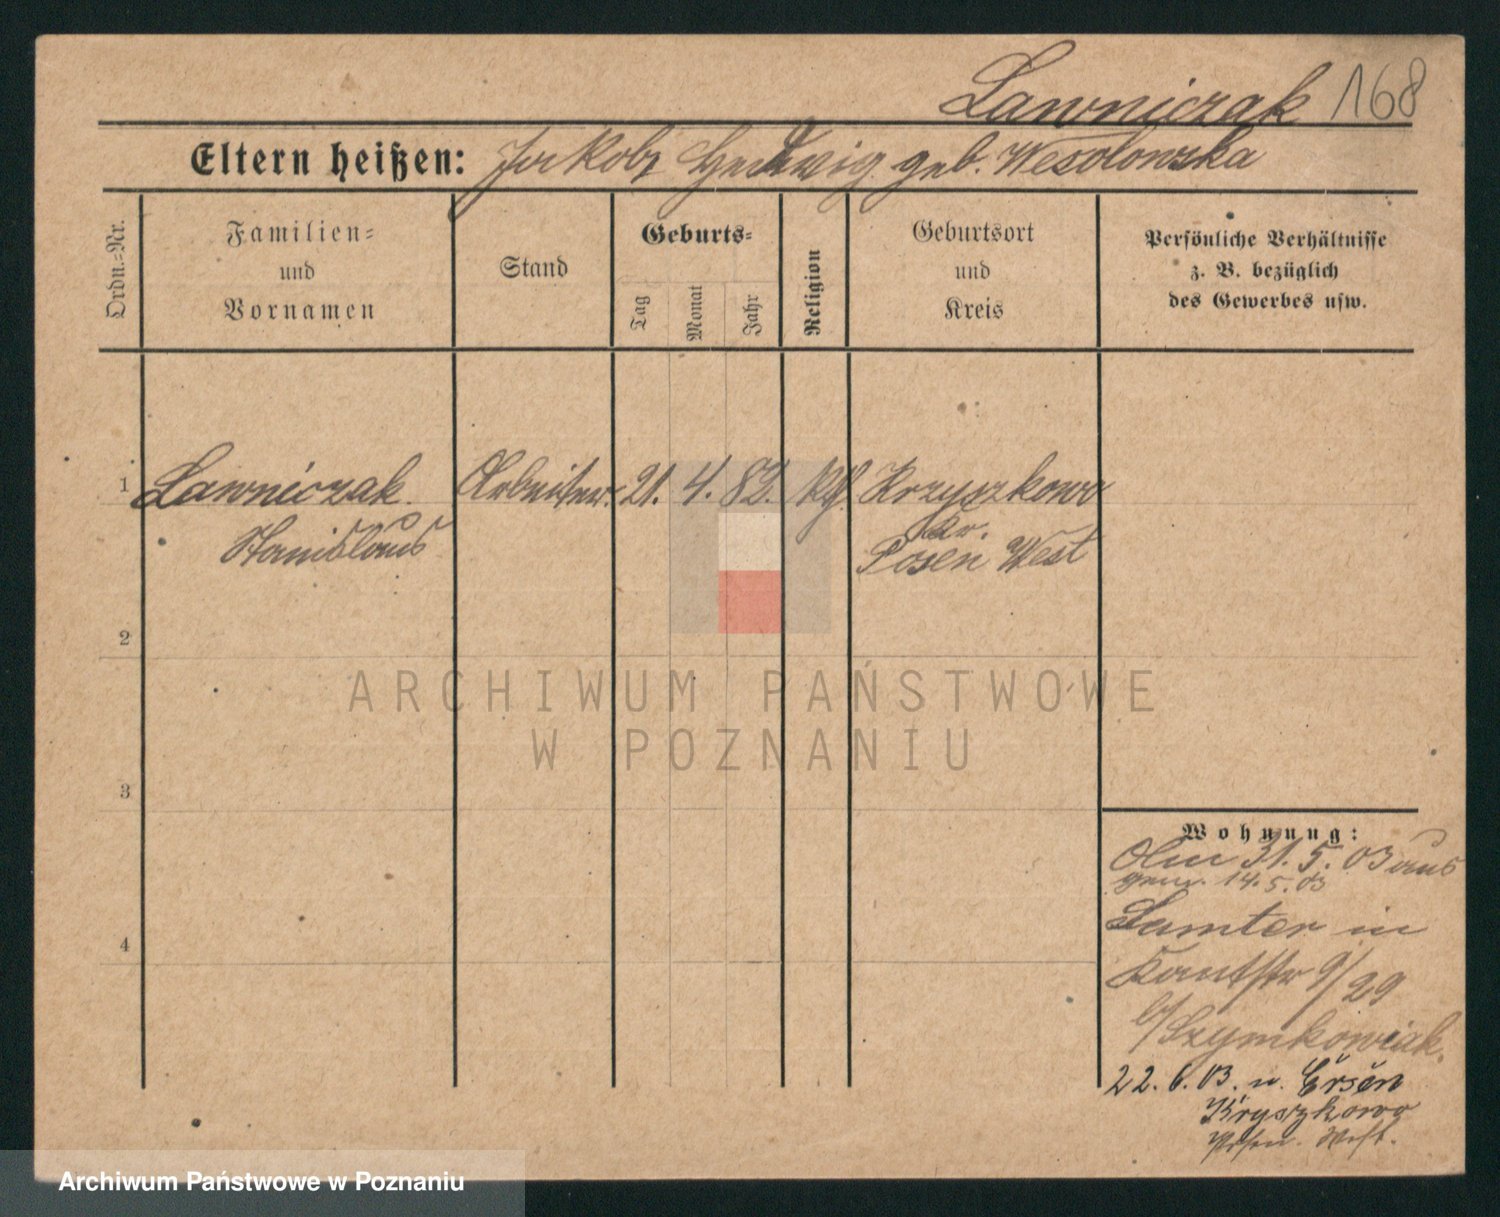 Lawniczak 168
Eltern heißen: Jakob, Hedwig geb. Wesolowska
Ordn.-Nr.
Familien-
und
Vornamen
Stand
Geburts-
Tag
Monat
Jahr
Religion
Geburtsort
und
Kreis
Persönliche Verhältnisse
z. B. bezüglich
des Gewerbes usw.
1 Lawniczak Arbeiter 21. 4. 82. Krzyszkowo
Stanislaus Kr.
Posen West
2
3
4
Wohnung:
Am 31. 5. 03 aus
gem. 14. 5. 03
Samter in
Kantstr 9/29
b/Szymkowiak.
22. 6. 03. n.
Kryszkowo
Posen. West.
ARCHIWUM PAŃSTWOWE
W POZNANIU
Archiwum Państwowe w Poznaniu